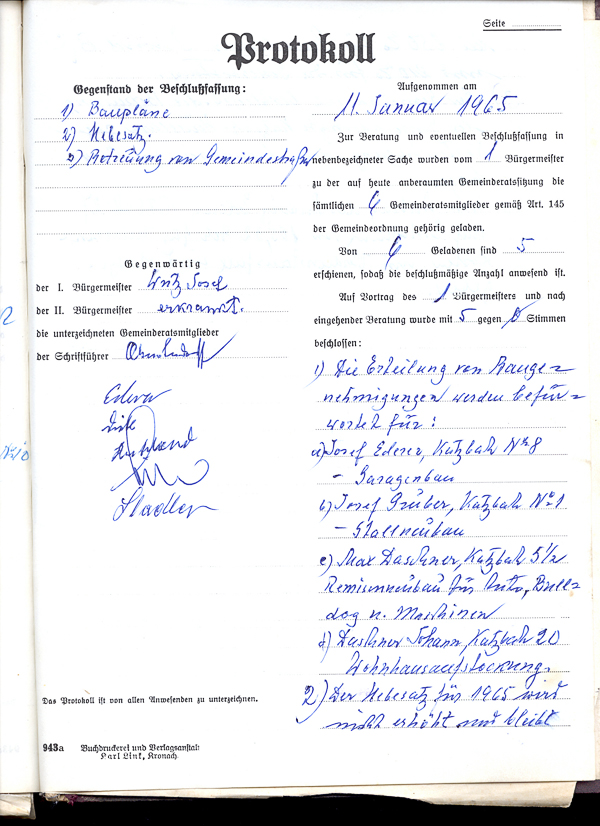 Seite
Protokoll
Gegenstand der Beschlußfassung:
1) Baupläne
2) Hebesatz.
3) Betreuung von Gemeindestraßen
Gegenwärtig
der I. Bürgermeister Josef
der II. Bürgermeister erkrankt.
die unterzeichneten Gemeinderatsmitglieder
der Schriftführer
Stadler
Das Protokoll ist von allen Anwesenden zu unterzeichnen.
943a Buchdruckerei und Verlagsanstalt
Carl Link, Kronach
Aufgenommen am
11. Januar 1965
Zur Beratung und eventuellen Beschlußfassung in
nebenbezeichneter Sache wurden vom 1 Bürgermeister
zu der auf heute anberaumten Gemeinderatssitzung die
sämtlichen 6 Gemeinderatsmitglieder gemäß Art. 145
der Gemeindeordnung gehörig geladen.
Von 6 Geladenen sind 5
erschienen, sodaß die beschlußmäßige Anzahl anwesend ist.
Auf Vortrag des 1 Bürgermeisters und nach
eingehender Beratung wurde mit 5 gegen 0 Stimmen
beschlossen:
1) Die Erteilung von Bauge=
nehmigungen werden befür=
wortet für:
a) Josef Ederer, Katzbach Nr 8
- Garagenbau
b) Josef Gruber, Katzbach No 1
- Stallneubau
c) Max Daschner, Katzbach 5 1/2
Remisenneubau für Auto, Bull=
dog u. Maschinen
d) Daschner Johann, Katzbach 20
Wohnhausaufstockung.
2) Der Hebesatz für 1965 wird
nicht erhöht und bleibt